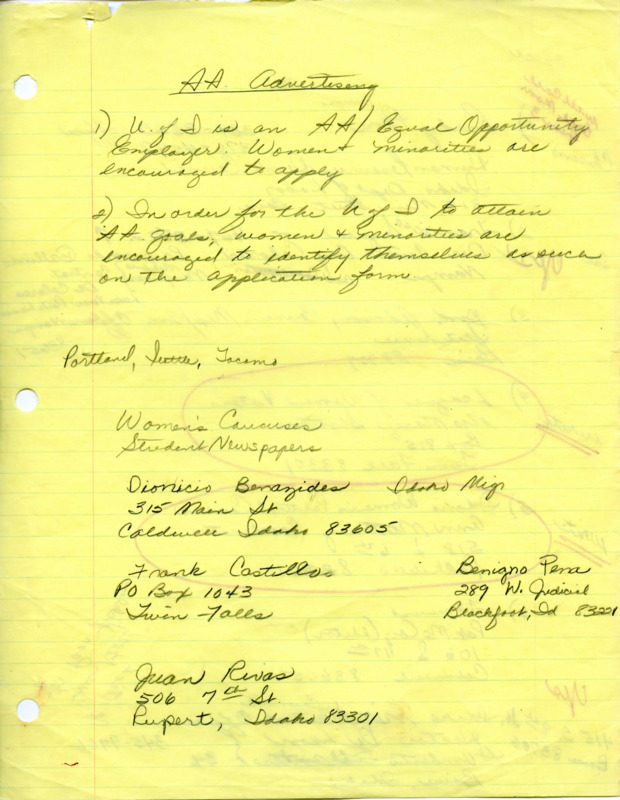 AA. Advertising
1) U. of I is an AA/ Equal Opportunity
Employer. Women + minorities are
encouraged to apply
2) In order for the U of I to attain
AA goals, women + minorities are
encouraged to identify themselves as such
on the application form.
Portland, Seattle, Tacoma
Women's Caucuses
Student Newspapers
Dionicio Benazides Idaho Migr
315 Main St
Caldwell Idaho 83605
Frank Castillos
PO Box 1043
Twin Falls
Benigno Pena
289 W. Judicial
Blackfoot, Id 83221
Juan Rivas
506 7th St
Rupert, Idaho 83301